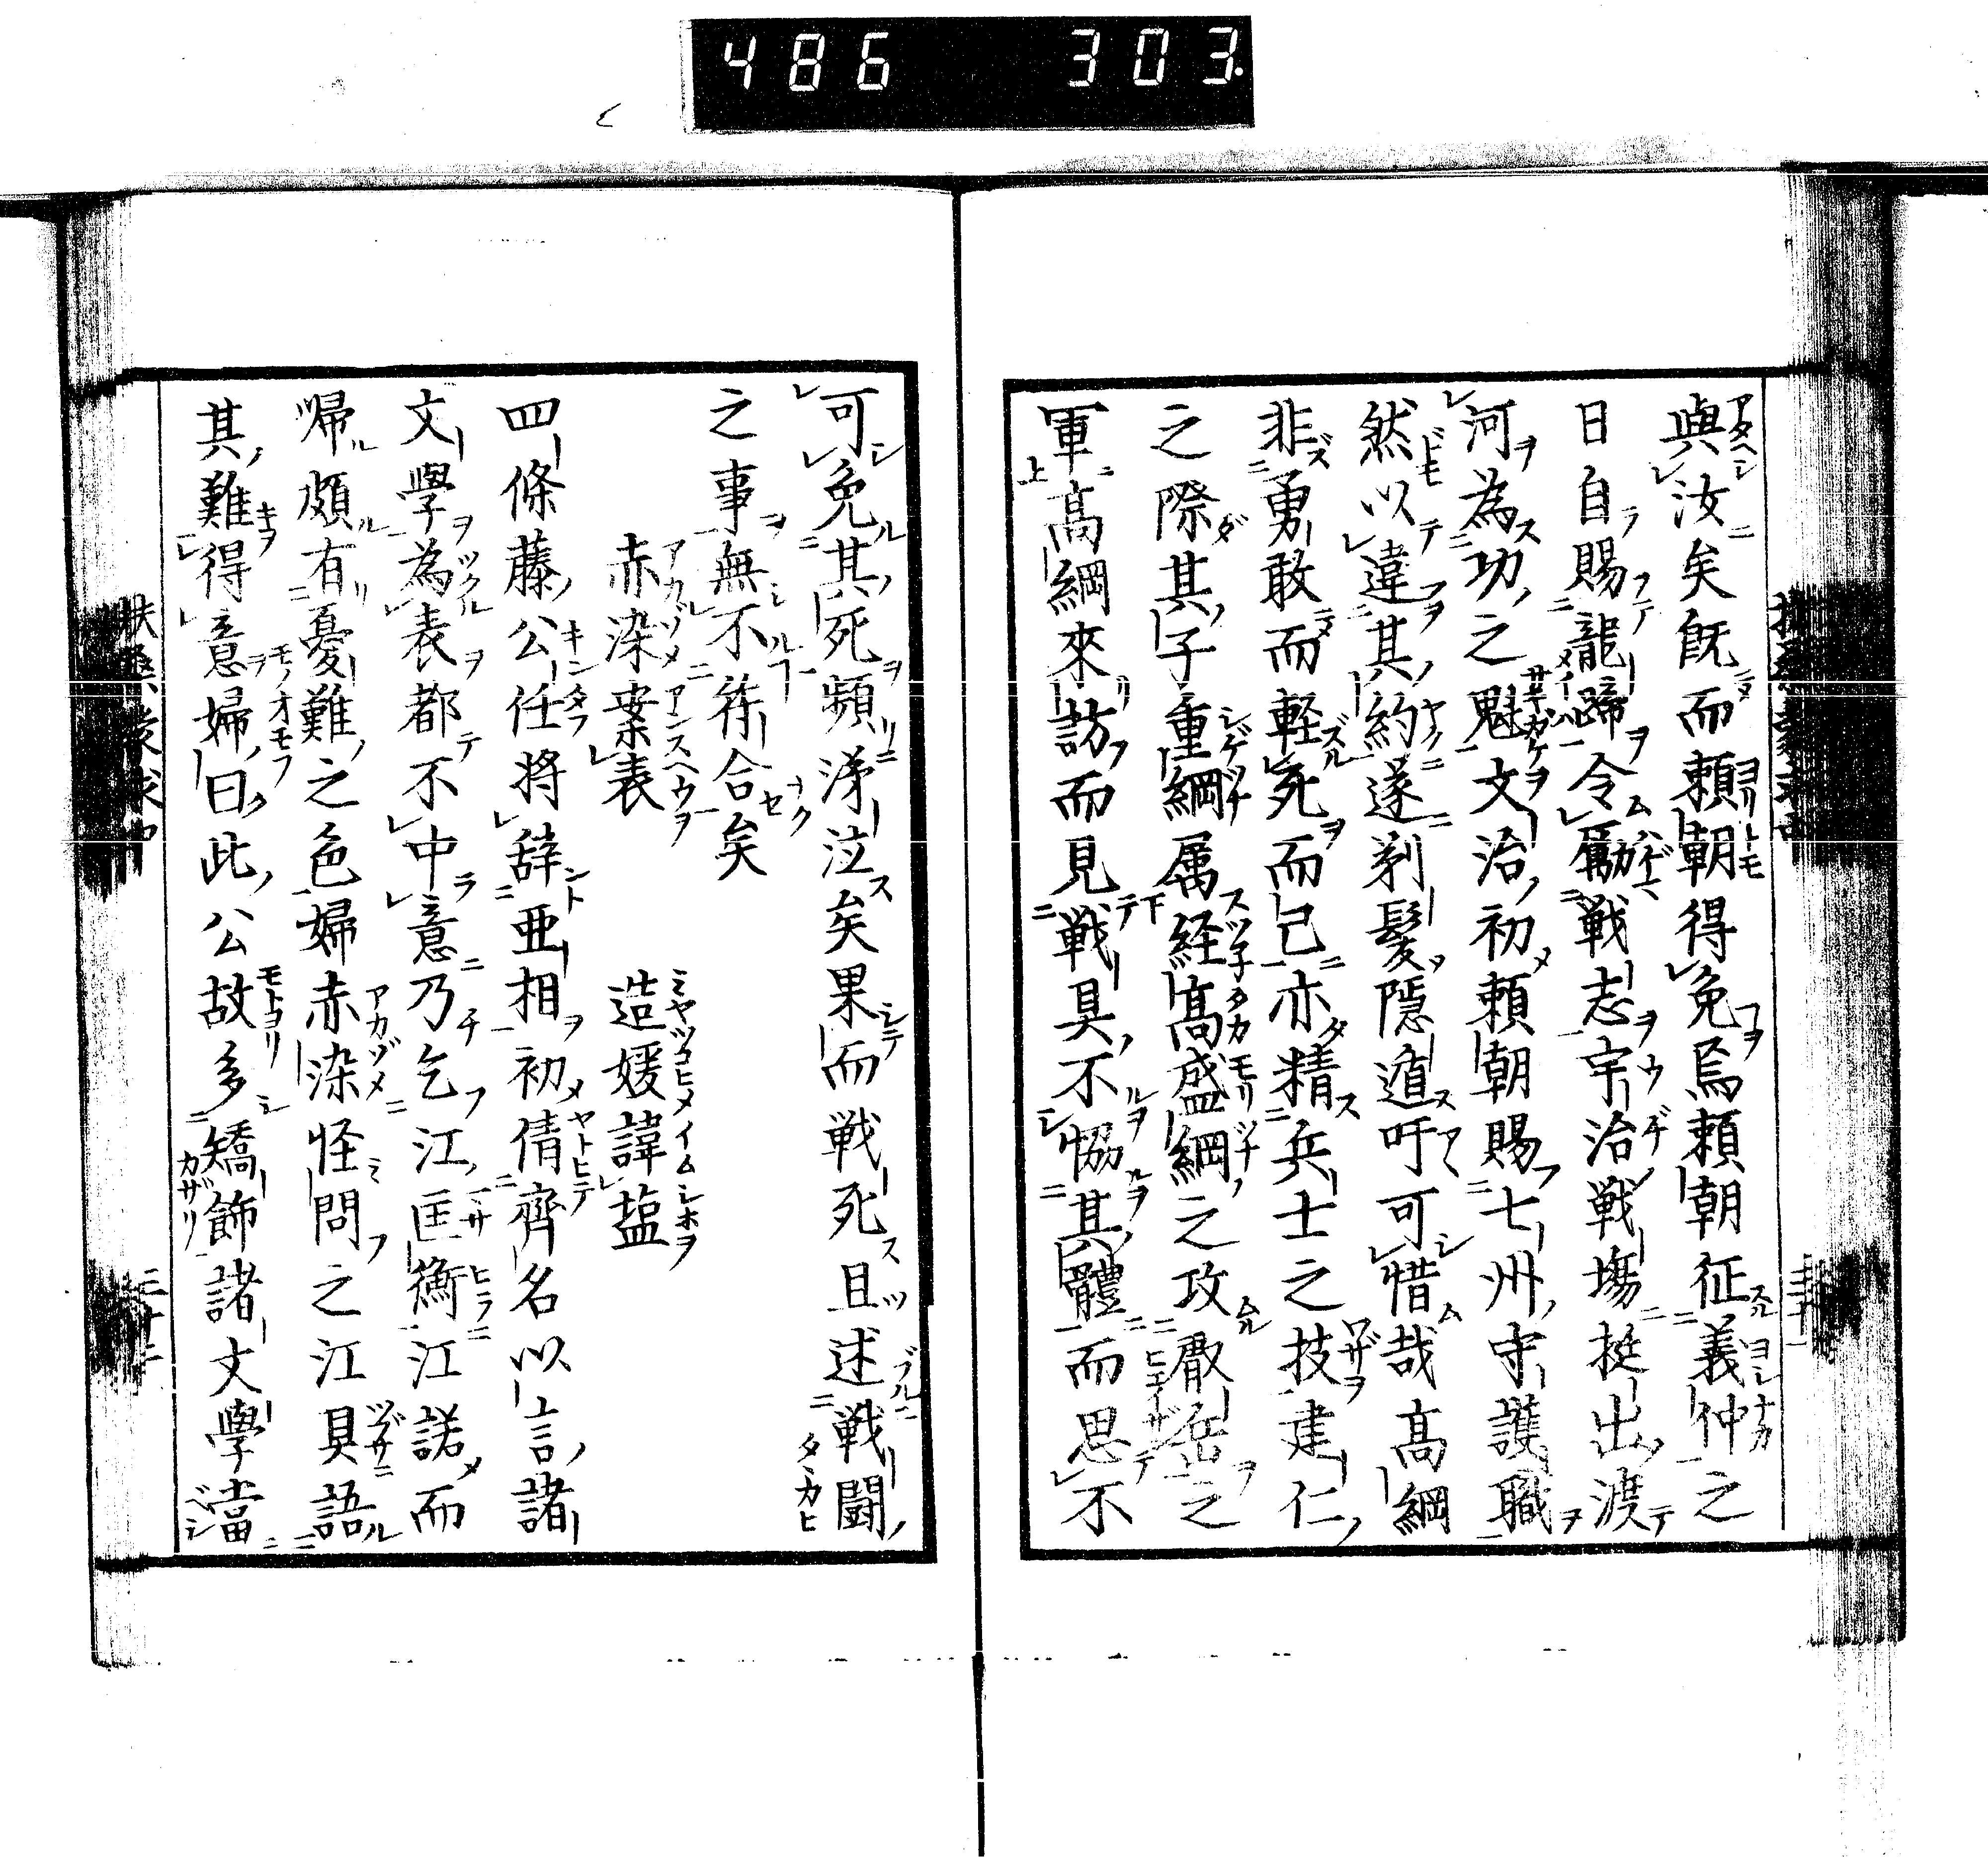 486 303
與汝矣既而頼朝得免焉頼朝征義仲之
日自賜龍蹄令勵戦志宇治戦塲挺出渡
河為功之魁文治初頼朝賜七州守護職
然以違其約遂剃髪隠遁吁可惜哉高綱
非勇敢而軽死而已亦精兵士之技建仁
之際其子重綱属経高盛綱之攻叡岳之
軍高綱來訪而見戦具不恊其體而思不
可免其死頻涕泣矣果而戦死且述戦闘
之事無不符合矣
赤染案表 造媛諱塩
四條藤公任将辞亜相初倩齊名以言諸
文學為表都不中意乃乞江匡衡江諾而
帰頗有憂難之色婦赤染怪問之江具語
其難得意婦曰此公故多矯飾諸文學當